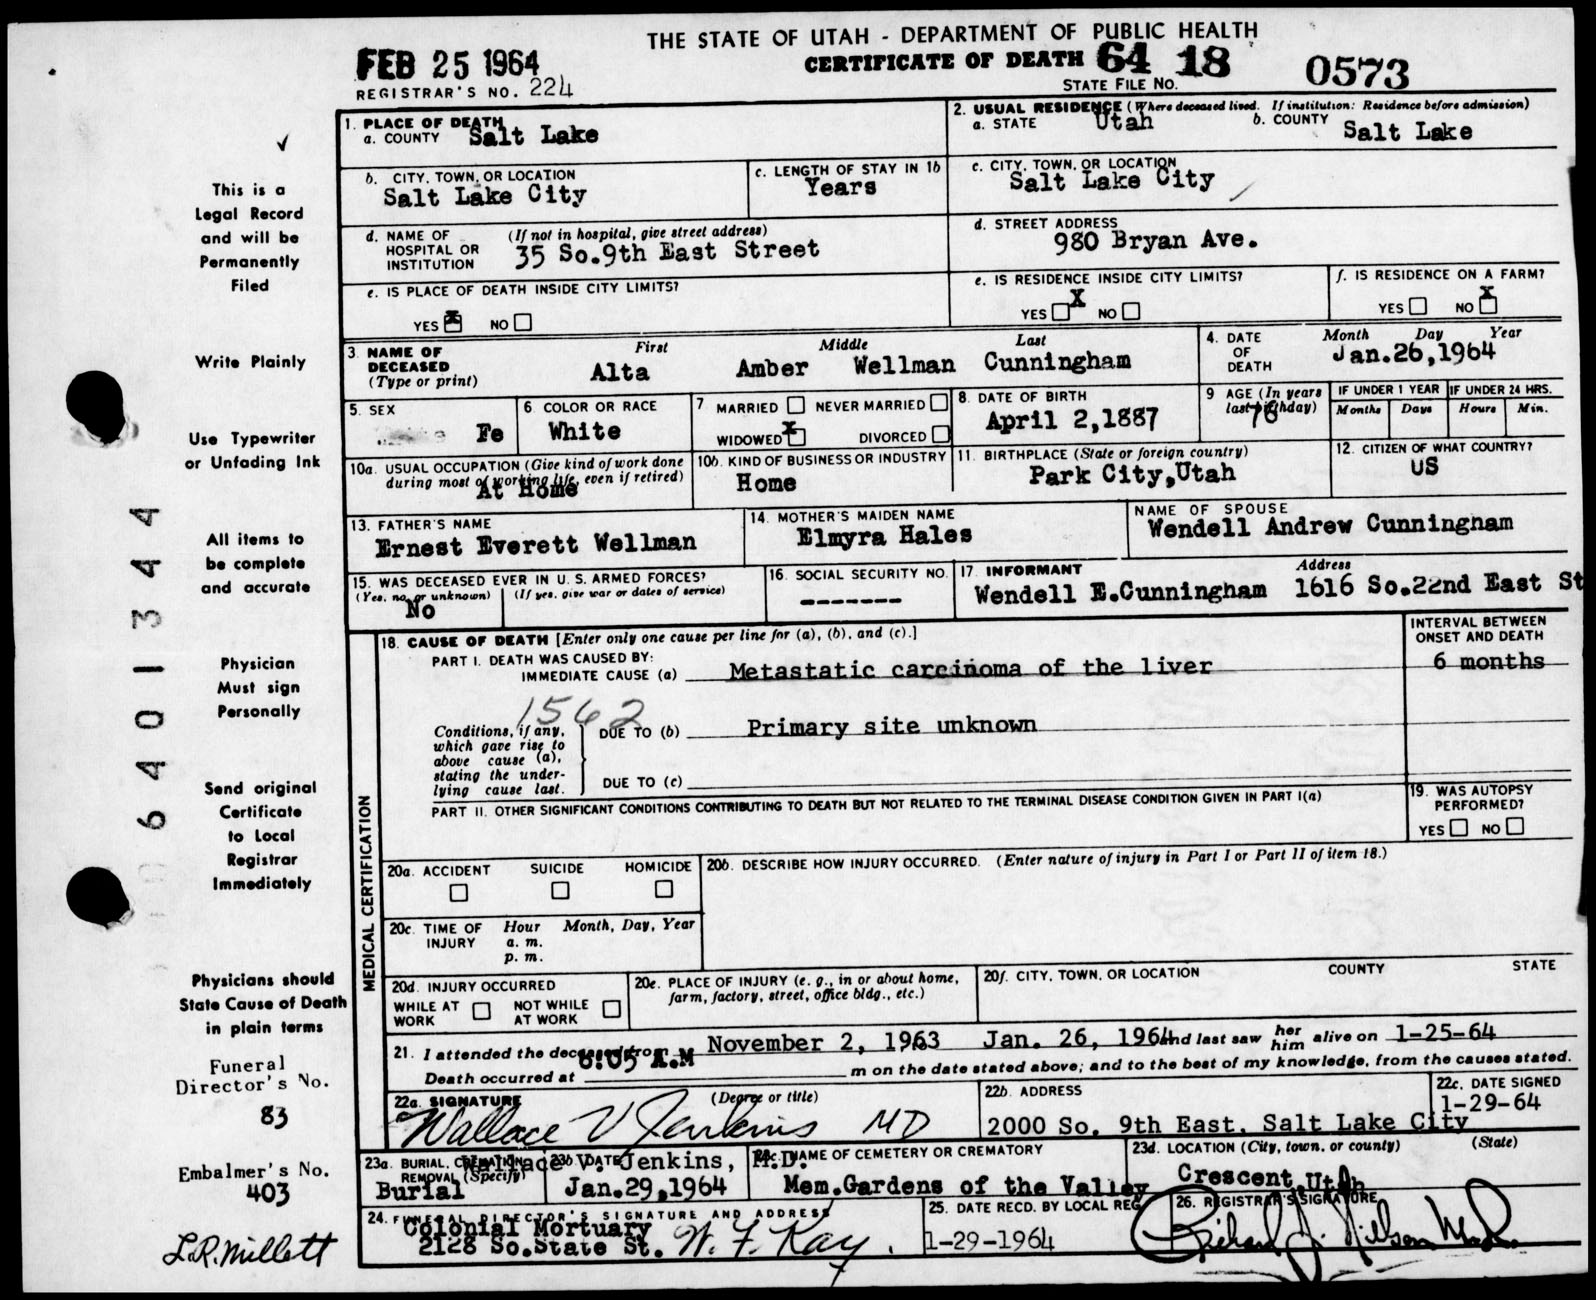 THE STATE OF UTAH - DEPARTMENT OF PUBLIC HEALTH
FEB 25 1964
CERTIFICATE OF DEATH 64 18 0573
REGISTRAR'S NO. 224
STATE FILE NO.
1. PLACE OF DEATH
a. COUNTY Salt Lake
2. USUAL RESIDENCE (Where deceased lived. If institution: Residence before admission)
a. STATE Utah b. COUNTY Salt Lake
b. CITY, TOWN, OR LOCATION
Salt Lake City
c. LENGTH OF STAY IN 1b
Years
c. CITY, TOWN, OR LOCATION
Salt Lake City
d. NAME OF HOSPITAL OR INSTITUTION (If not in hospital, give street address)
35 So.9th East Street
d. STREET ADDRESS
980 Bryan Ave.
e. IS PLACE OF DEATH INSIDE CITY LIMITS?
YES X NO
e. IS RESIDENCE INSIDE CITY LIMITS?
YES X NO
f. IS RESIDENCE ON A FARM?
YES NO X
3. NAME OF DECEASED (Type or print)
First Middle Last
Alta Amber Wellman Cunningham
4. DATE OF DEATH Month Day Year
Jan.26,1964
5. SEX
Fe
6 COLOR OR RACE
White
7 MARRIED NEVER MARRIED
WIDOWED X DIVORCED
8. DATE OF BIRTH
April 2,1887
9 AGE (In years last birthday)
76
IF UNDER 1 YEAR IF UNDER 24 HRS.
Months Days Hours Min.
10a. USUAL OCCUPATION (Give kind of work done during most of working life, even if retired)
At Home
10b. KIND OF BUSINESS OR INDUSTRY
Home
11. BIRTHPLACE (State or foreign country)
Park City,Utah
12. CITIZEN OF WHAT COUNTRY?
US
13. FATHER'S NAME
Ernest Everett Wellman
14. MOTHER'S MAIDEN NAME
Elmyra Hales
NAME OF SPOUSE
Wendell Andrew Cunningham
15. WAS DECEASED EVER IN U. S. ARMED FORCES?
(Yes, no, or unknown) (If yes, give war or dates of service)
No
16. SOCIAL SECURITY NO.
-------
17. INFORMANT Address
Wendell E.Cunningham 1616 So.22nd East St
MEDICAL CERTIFICATION
18. CAUSE OF DEATH [Enter only one cause per line for (a), (b), and (c).]
INTERVAL BETWEEN ONSET AND DEATH
PART I. DEATH WAS CAUSED BY:
IMMEDIATE CAUSE (a) Metastatic carcinoma of the liver 6 months
1562
Conditions, if any, which gave rise to above cause (a), stating the underlying cause last.
DUE TO (b) Primary site unknown
DUE TO (c)
PART II. OTHER SIGNIFICANT CONDITIONS CONTRIBUTING TO DEATH BUT NOT RELATED TO THE TERMINAL DISEASE CONDITION GIVEN IN PART I(a)
19. WAS AUTOPSY PERFORMED?
YES NO
20a. ACCIDENT SUICIDE HOMICIDE
20b. DESCRIBE HOW INJURY OCCURRED. (Enter nature of injury in Part I or Part II of item 18.)
20c. TIME OF INJURY Hour Month, Day, Year
a. m.
p. m.
20d. INJURY OCCURRED
WHILE AT WORK NOT WHILE AT WORK
20e. PLACE OF INJURY (e. g., in or about home, farm, factory, street, office bldg., etc.)
20f. CITY, TOWN, OR LOCATION COUNTY STATE
21. I attended the deceased from November 2, 1963 Jan. 26, 1964 and last saw her him alive on 1-25-64
Death occurred at 6:05 A.M m on the date stated above; and to the best of my knowledge, from the causes stated.
22a. SIGNATURE (Degree or title)
Wallace V Jenkins MD
22b. ADDRESS
2000 So. 9th East, Salt Lake City
22c. DATE SIGNED
1-29-64
Wallace V. Jenkins, M.D.
23a. BURIAL, CREMATION, REMOVAL (Specify)
Burial
23b. DATE
Jan.29,1964
23c. NAME OF CEMETERY OR CREMATORY
Mem.Gardens of the Valley
23d. LOCATION (City, town, or county) (State)
Crescent,Utah
24. FUNERAL DIRECTOR'S SIGNATURE AND ADDRESS
Colonial Mortuary
2128 So.State St. W. F. Kay
25. DATE RECD. BY LOCAL REG.
1-29-1964
26. REGISTRAR'S SIGNATURE
Richard J. Nilson M.D.
This is a
Legal Record
and will be
Permanently
Filed
Write Plainly
Use Typewriter
or Unfading Ink
All items to
be complete
and accurate
Physician
Must sign
Personally
Send original
Certificate
to Local
Registrar
Immediately
Physicians should
State Cause of Death
in plain terms
Funeral
Director's No.
83
Embalmer's No.
403
L.R. Millett
06401344